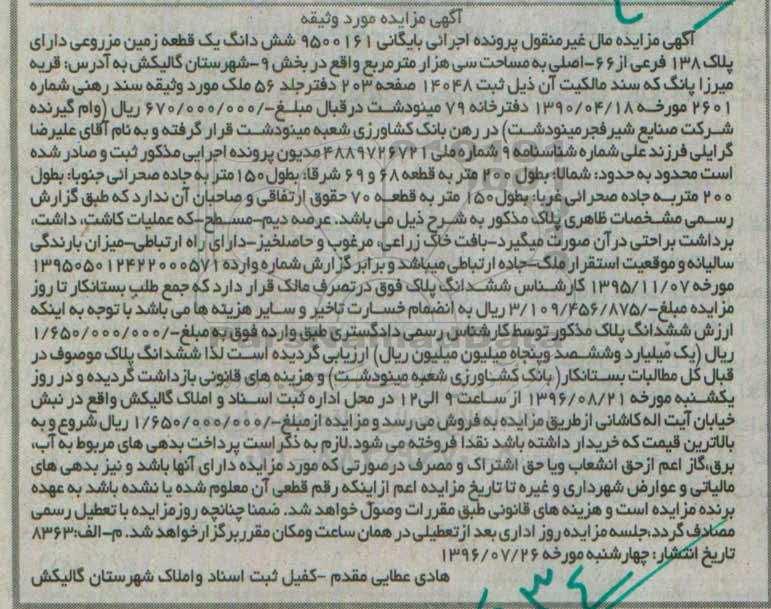 آگهی مزایده مورد وثیقه
آگهی مزایده مال غیرمنقول پرونده اجرائی بایگانی ۹۵۰۰۱۶۱ شش دانگ یک قطعه زمین مزروعی دارای
پلاک ۱۳۸ فرعی از ۶۶-اصلی به مساحت سی هزار مترمربع واقع در بخش ۹-شهرستان گالیکش به آدرس: قریه
میرزا پانگ که سند مالکیت آن ذیل ثبت ۱۴۰۴۸ صفحه ۲۰۳ دفترجلد ۵۶ ملک مورد وثیقه سند رهنی شماره
۲۶۰۱ مورخه ۱۳۹۰/۰۴/۱۸ دفترخانه ۷۹ مینودشت درقبال مبلغ-/۶۷۰/۰۰۰/۰۰۰ ریال (وام گیرنده
شرکت صنایع شیرفجرمینودشت) در رهن بانک کشاورزی شعبه مینودشت قرار گرفته و به نام آقای علیرضا
گرایلی فرزند علی شماره شناسنامه ۹ شماره ملی ۴۸۸۹۷۲۶۷۲۱ مدیون پرونده اجرایی مذکور ثبت و صادر شده
است محدود به حدود: شمالا: بطول ۲۰۰ متر به قطعه ۶۸ و ۶۹ شرقا: بطول ۱۵۰ متر به جاده صحرائی جنوبا: بطول
۲۰۰ متربه جاده صحرائی غربا: بطول ۱۵۰ متر به قطعه ۷۰ حقوق ارتفاقی و صاحبان آن ندارد که طبق گزارش
رسمی مشخصات ظاهری پلاک مذکور به شرح ذیل می باشد. عرصه دیم-مسطح-که عملیات کاشت، داشت،
برداشت براحتی در آن صورت میگیرد-بافت خاک زراعی، مرغوب و حاصلخیز-دارای راه ارتباطی-میزان بارندگی
سالیانه و موقعیت استقرار ملک-جاده ارتباطی میباشد و برابر گزارش شماره وارده ۱۳۹۵۰۵۰۱۲۴۲۲۰۰۰۵۷۱
مورخه ۱۳۹۵/۱۱/۰۷ کارشناس ششدانگ پلاک فوق درتصرف مالک قرار دارد که جمع طلب بستانکار تا روز
مزایده مبلغ-/۳/۱۰۹/۴۵۶/۸۷۵ ریال به انضمام خسارت تاخیر و سایر هزینه ها می باشد با توجه به اینکه
ارزش ششدانگ پلاک مذکور توسط کارشناس رسمی دادگستری طبق وارده فوق به مبلغ-/۱/۶۵۰/۰۰۰/۰۰۰
ریال (یک میلیارد وششصد وپنجاه میلیون میلیون ریال) ارزیابی گردیده است لذا ششدانگ پلاک موصوف در
قبال کل مطالبات بستانکار(بانک کشاورزی شعبه مینودشت) و هزینه های قانونی بازداشت گردیده و در روز
یکشنبه مورخه ۱۳۹۶/۰۸/۲۱ از ساعت ۹ الی۱۲ در محل اداره ثبت اسناد و املاک گالیکش واقع در نبش
خیابان آیت اله کاشانی از طریق مزایده به فروش می رسد و مزایده از مبلغ-/۱/۶۵۰/۰۰۰/۰۰۰ ریال شروع و به
بالاترین قیمت که خریدار داشته باشد نقدا فروخته می شود.لازم به ذکر است پرداخت بدهی های مربوط به آب،
برق،گاز اعم ازحق انشعاب ویا حق اشتراک و مصرف درصورتی که مورد مزایده دارای آنها باشد و نیز بدهی های
مالیاتی و عوارض شهرداری و غیره تا تاریخ مزایده اعم ازاینکه رقم قطعی آن معلوم شده یا نشده باشد به عهده
برنده مزایده است و هزینه های قانونی طبق مقررات وصول خواهد شد. ضمنا چنانچه روزمزایده با تعطیل رسمی
مصادف گردد،جلسه مزایده روز اداری بعد ازتعطیلی در همان ساعت ومکان مقرربرگزارخواهد شد. م-الف:۸۳۶۳
تاریخ انتشار: چهارشنبه مورخه ۱۳۹۶/۰۷/۲۶
هادی عطایی مقدم -کفیل ثبت اسناد واملاک شهرستان گالیکش